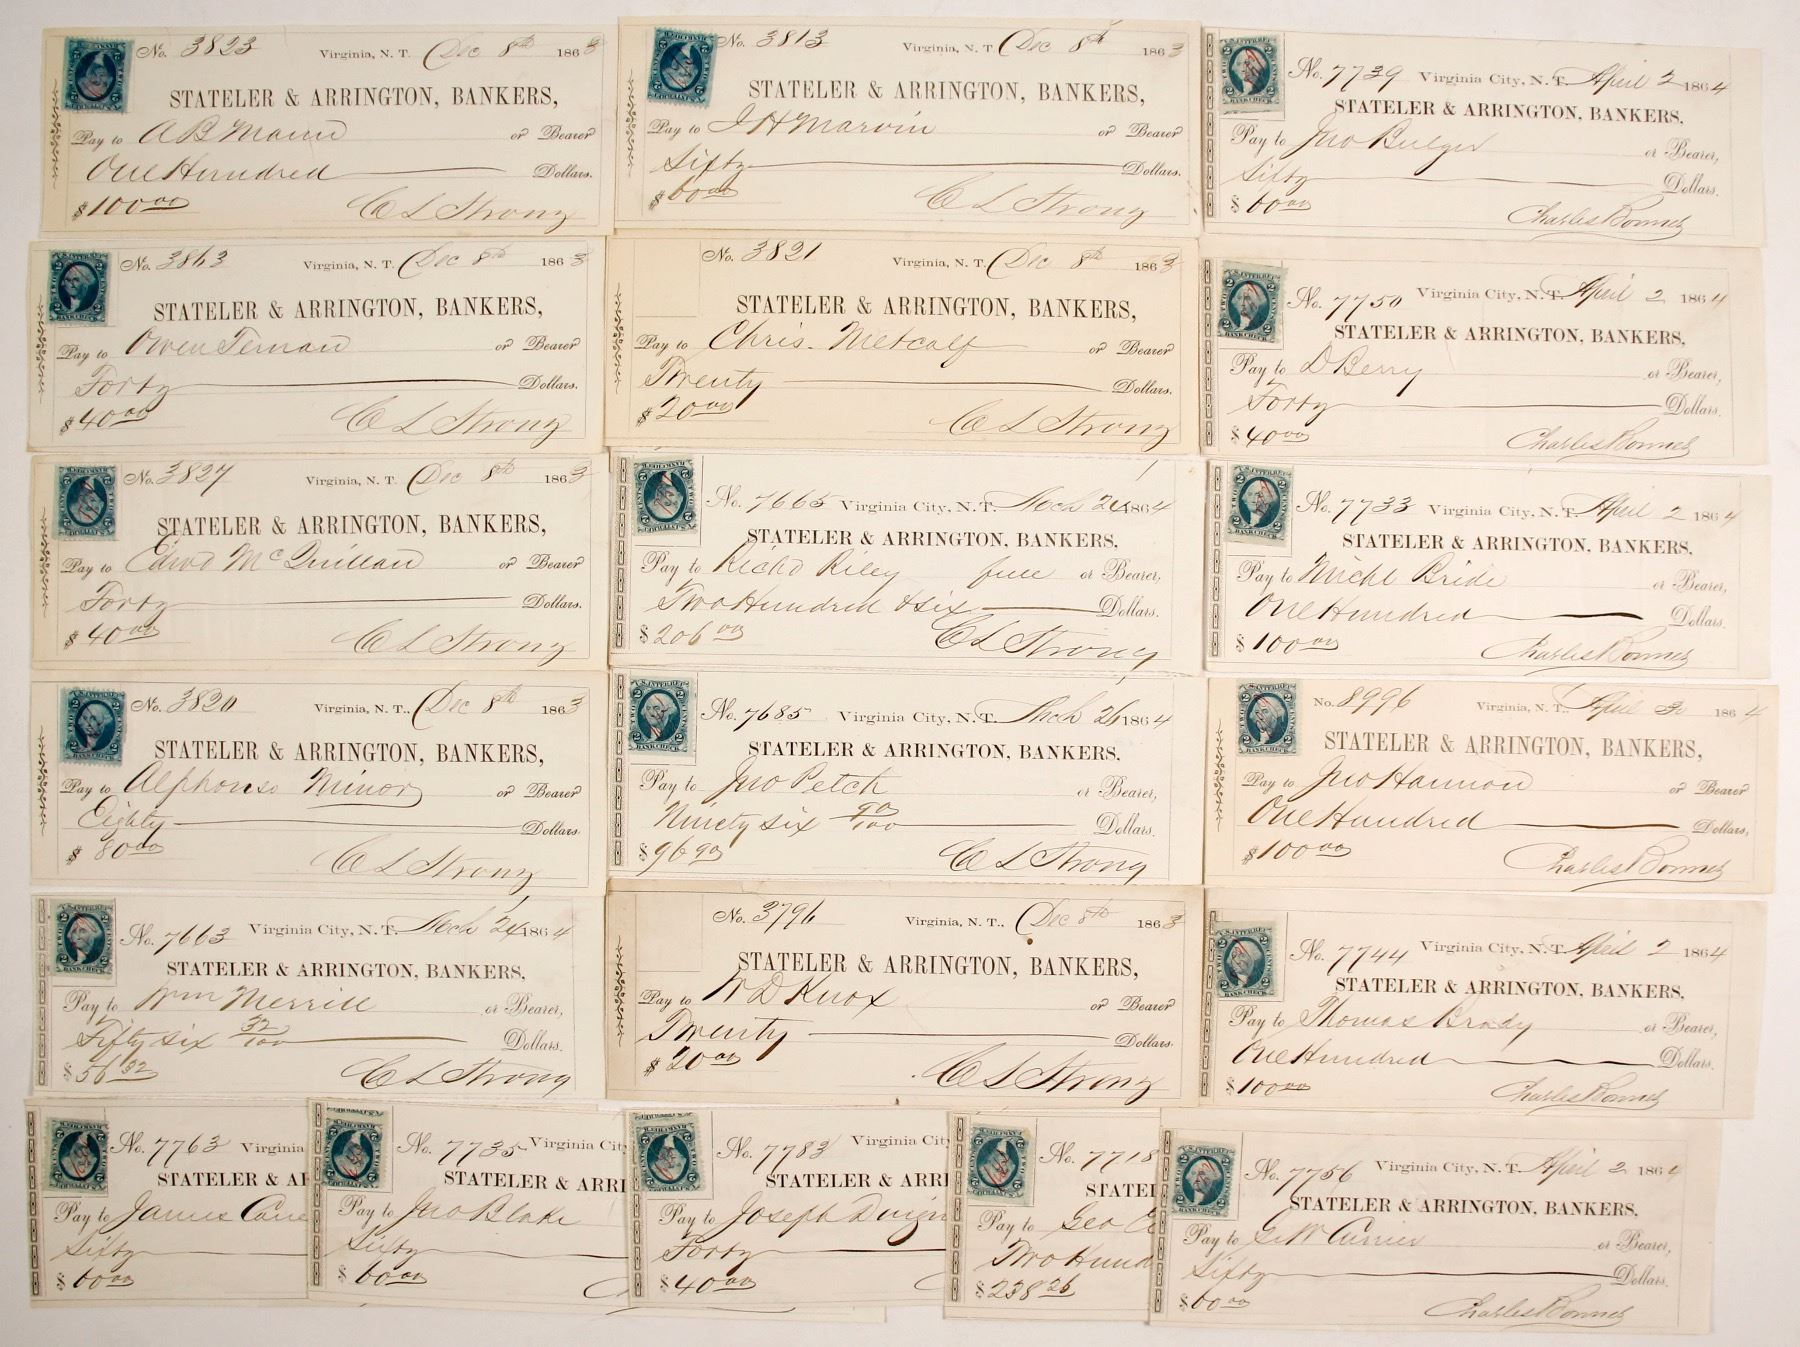 No. 3823 Virginia, N. T. Dec 8th 1863
STATELER & ARRINGTON, BANKERS,
Pay to A B Mann or Bearer
One Hundred Dollars.
$100.00 C L Strong
No. 3813 Virginia, N. T. Dec 8th 1863
STATELER & ARRINGTON, BANKERS,
Pay to J H Marvin or Bearer
Sixty Dollars.
$60.00 C L Strong
No. 7739 Virginia City, N. T. April 2 1864
STATELER & ARRINGTON, BANKERS,
Pay to Jno Bulger or Bearer,
Sixty Dollars.
$60.00 Charles Bonner
No. 3863 Virginia, N. T. Dec 8th 1863
STATELER & ARRINGTON, BANKERS,
Pay to Owen Ternan or Bearer
Forty Dollars.
$40.00 C L Strong
No. 3821 Virginia, N. T. Dec 8th 1863
STATELER & ARRINGTON, BANKERS,
Pay to Chris. Metcalf or Bearer
Twenty Dollars.
$20.00 C L Strong
No. 7750 Virginia City, N. T. April 2 1864
STATELER & ARRINGTON, BANKERS,
Pay to D Berry or Bearer,
Forty Dollars.
$40.00 Charles Bonner
No. 3827 Virginia, N. T. Dec 8th 1863
STATELER & ARRINGTON, BANKERS,
Pay to Edwd McQuillan or Bearer
Forty Dollars.
$40.00 C L Strong
No. 7665 Virginia City, N. T. Mch 24 1864
STATELER & ARRINGTON, BANKERS,
Pay to Richd Riley or Bearer,
Two Hundred & six Dollars.
$206.00 C L Strong
No. 7733 Virginia City, N. T. April 2 1864
STATELER & ARRINGTON, BANKERS,
Pay to Michl Bride or Bearer,
One Hundred Dollars.
$100.00 Charles Bonner
No. 3820 Virginia, N. T., Dec 8th 1863
STATELER & ARRINGTON, BANKERS,
Pay to Alphonso Minor or Bearer
Eighty Dollars.
$80.00 C L Strong
No. 7685 Virginia City, N. T. Mch 26 1864
STATELER & ARRINGTON, BANKERS.
Pay to Jno Petch or Bearer,
Ninety six 90/100 Dollars.
$96.90 C L Strong
No. 8996 Virginia, N. T., April 2 1864
STATELER & ARRINGTON, BANKERS,
Pay to Jno Hannon or Bearer
One Hundred Dollars,
$100.00 Charles Bonner
No. 7663 Virginia City, N. T. Mch 24 1864
STATELER & ARRINGTON, BANKERS,
Pay to Wm Merrill or Bearer,
Fifty six 32/100 Dollars.
$56.32 C L Strong
No. 3796 Virginia, N. T., Dec 8th 1863
STATELER & ARRINGTON, BANKERS,
Pay to W D Knox or Bearer
Twenty Dollars.
$20.00 C L Strong
No. 7744 Virginia City, N. T. April 2 1864
STATELER & ARRINGTON, BANKERS,
Pay to Thomas Brady or Bearer,
One Hundred Dollars.
$100.00 Charles Bonner
No. 7763 Virginia
STATELER & AR
Pay to James Cane
Sixty
$60.00
No. 7735 Virginia Cit
STATELER & ARRI
Pay to Jno Blake
Sixty
$60.00
No. 7783 Virginia Cit
STATELER & ARRI
Pay to Joseph
Forty
$40.00
No. 7718
STATEL
Pay to Geo
Two Hund
$238.26
No. 7756 Virginia City, N. T. April 2 1864
STATELER & ARRINGTON, BANKERS,
Pay to G W Currier or Bearer,
Sixty Dollars.
$60.00 Charles Bonner